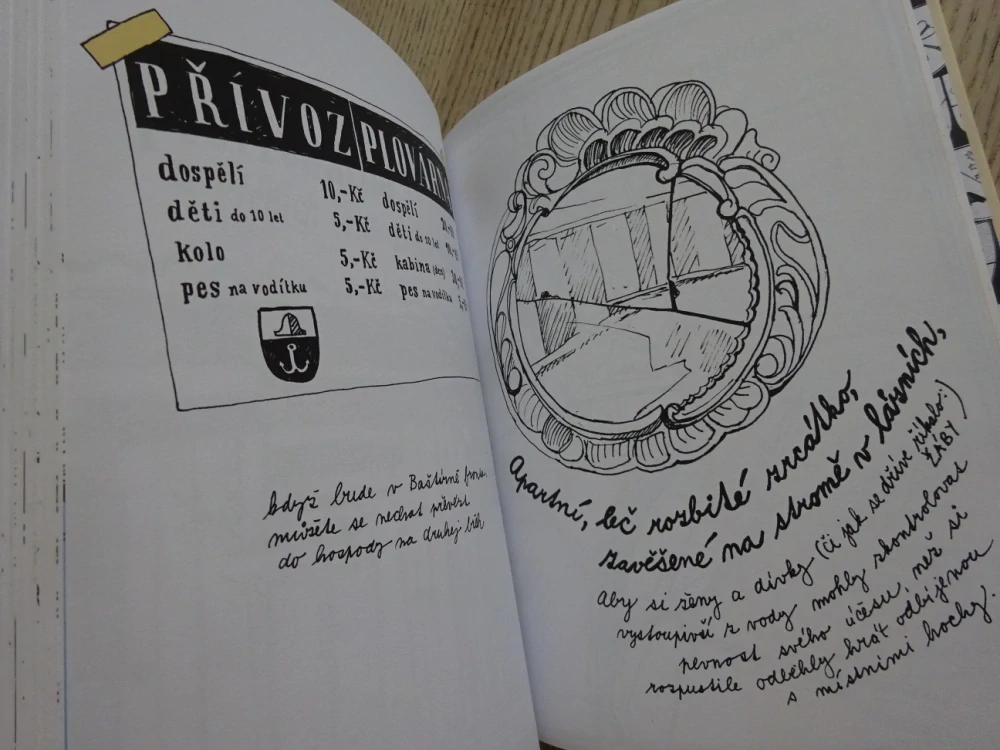 PŘÍVOZ
dospělí 10,-Kč
děti do 10 let 5,-Kč
kolo 5,-Kč
pes na vodítku 5,-Kč
dospělí
děti do 10 let
kabina
pes na vodítku
když bude v Baštírně fronta
můžete se nechat převézt
do hospody na druhej břeh
Apartní, leč rozbité zrcátko,
zavěšené na stromě v lázních,
Aby si ženy a dívky (či jak se dříve říkalo:) ŽÁBY
vystoupivší z vody mohly zkontrolovat
pevnost svého účesu, než si
rozpustile odběhly hrát odbíjenou
s místními hochy.